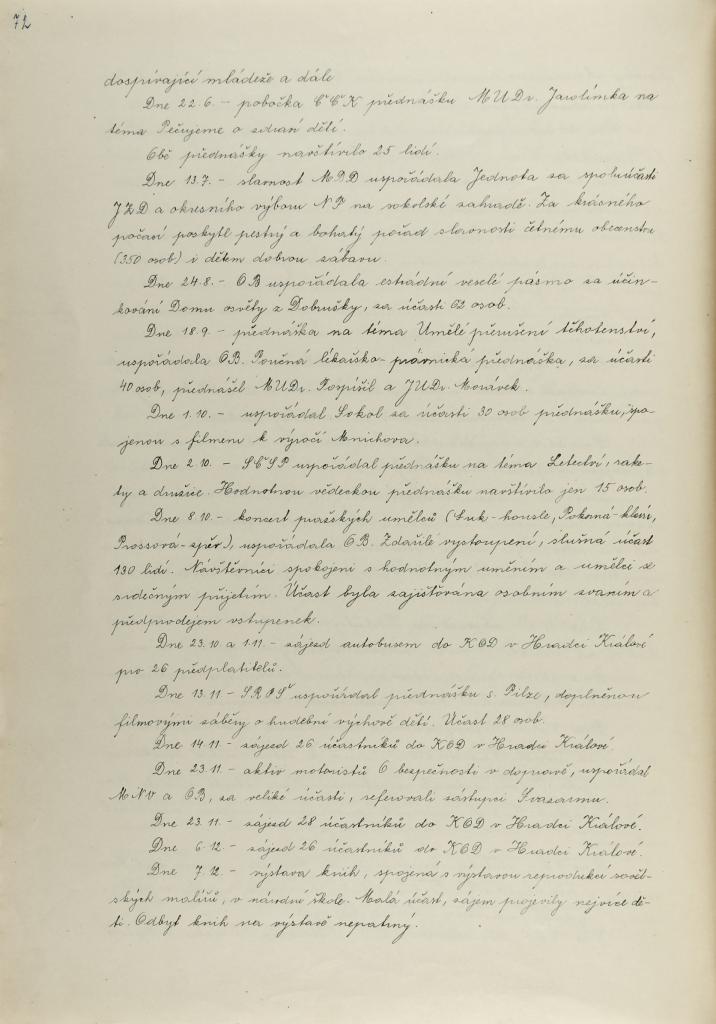 72
dospívající mládeže a dále
Dne 22.6. - pobočka ČČK přednášku MUDr. Jarolímka na
téma Pečujeme o zdraví dětí.
Obě přednášky navštívilo 25 lidí.
Dne 13.7. - slavnost MDD uspořádala Jednota za spoluúčasti
JZD a okresního výboru NF na sokolské zahradě. Za krásného
počasí poskytl pestrý a bohatý pořad slavnosti četnému obecenstvu
(350 osob) i dětem dobrou zábavu.
Dne 24.8. - OB uspořádala estrádní veselé pásmo za účin-
kování Domu osvěty z Dobrušky, za účasti 62 osob.
Dne 18.9. - přednáška na téma Umělé přerušení těhotenství,
uspořádala OB. Poučná lékařsko-právnická přednáška, za účasti
40 osob, přednášel MUDr. Pospíšil a JUDr. Morávek.
Dne 1.10. - uspořádal Sokol za účasti 30 osob přednášku, spo-
jenou s filmem k výročí Mnichova.
Dne 2.10. - SČSP uspořádal přednášku na téma Letectví, rake-
ty a družice. Hodnotnou vědeckou přednášku navštívilo jen 15 osob.
Dne 8.10. - koncert pražských umělců (Suk-housle, Pokorná-klavír,
Prossová-zpěv), uspořádala OB. Zdařilé vystoupení, slušná účast
130 lidí. Návštěvníci spokojeni s hodnotným uměním a umělci se
srdečným přijetím. Účast byla zajišťována osobním zvaním a
předprodejem vstupenek.
Dne 23.10. a 1.11. - zájezd autobusem do KOD v Hradci Králové
pro 26 předplatitelů.
Dne 13.11. - SRPŠ uspořádal přednášku s. Pilze, doplněnou
filmovými záběry o hudební výchově dětí. Účast 28 osob.
Dne 14.11. - zájezd 26 účastníků do KOD v Hradci Králové.
Dne 23.11. - aktiv motoristů O bezpečnosti v dopravě, uspořádal
MNV a OB, za veliké účasti, referovali zástupci Svazarmu.
Dne 23.11. - zájezd 28 účastníků do KOD v Hradci Králové.
Dne 6.12. - zájezd 26 účastníků do KOD v Hradci Králové.
Dne 7.12. - výstava knih, spojená s výstavou reprodukcí sovět-
ských malířů, v národní škole. Malá účast, zájem projevily nejvíce dě-
ti. Odbyt knih na výstavě nepatrný.